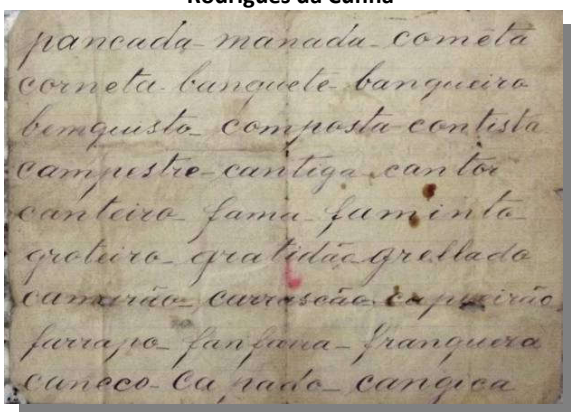 Rodrigues da Cunha
pancada - manada - cometa
corneta - banquete - banqueiro
bemquisto - composta - contista
campestre - cantiga - cantor
canteiro - fama - faminto
groteiro - gratidão - grellado
camarão - carrascão - capoeirão
farrapo - fanfarra - franqueza
caneco - capado - cangica